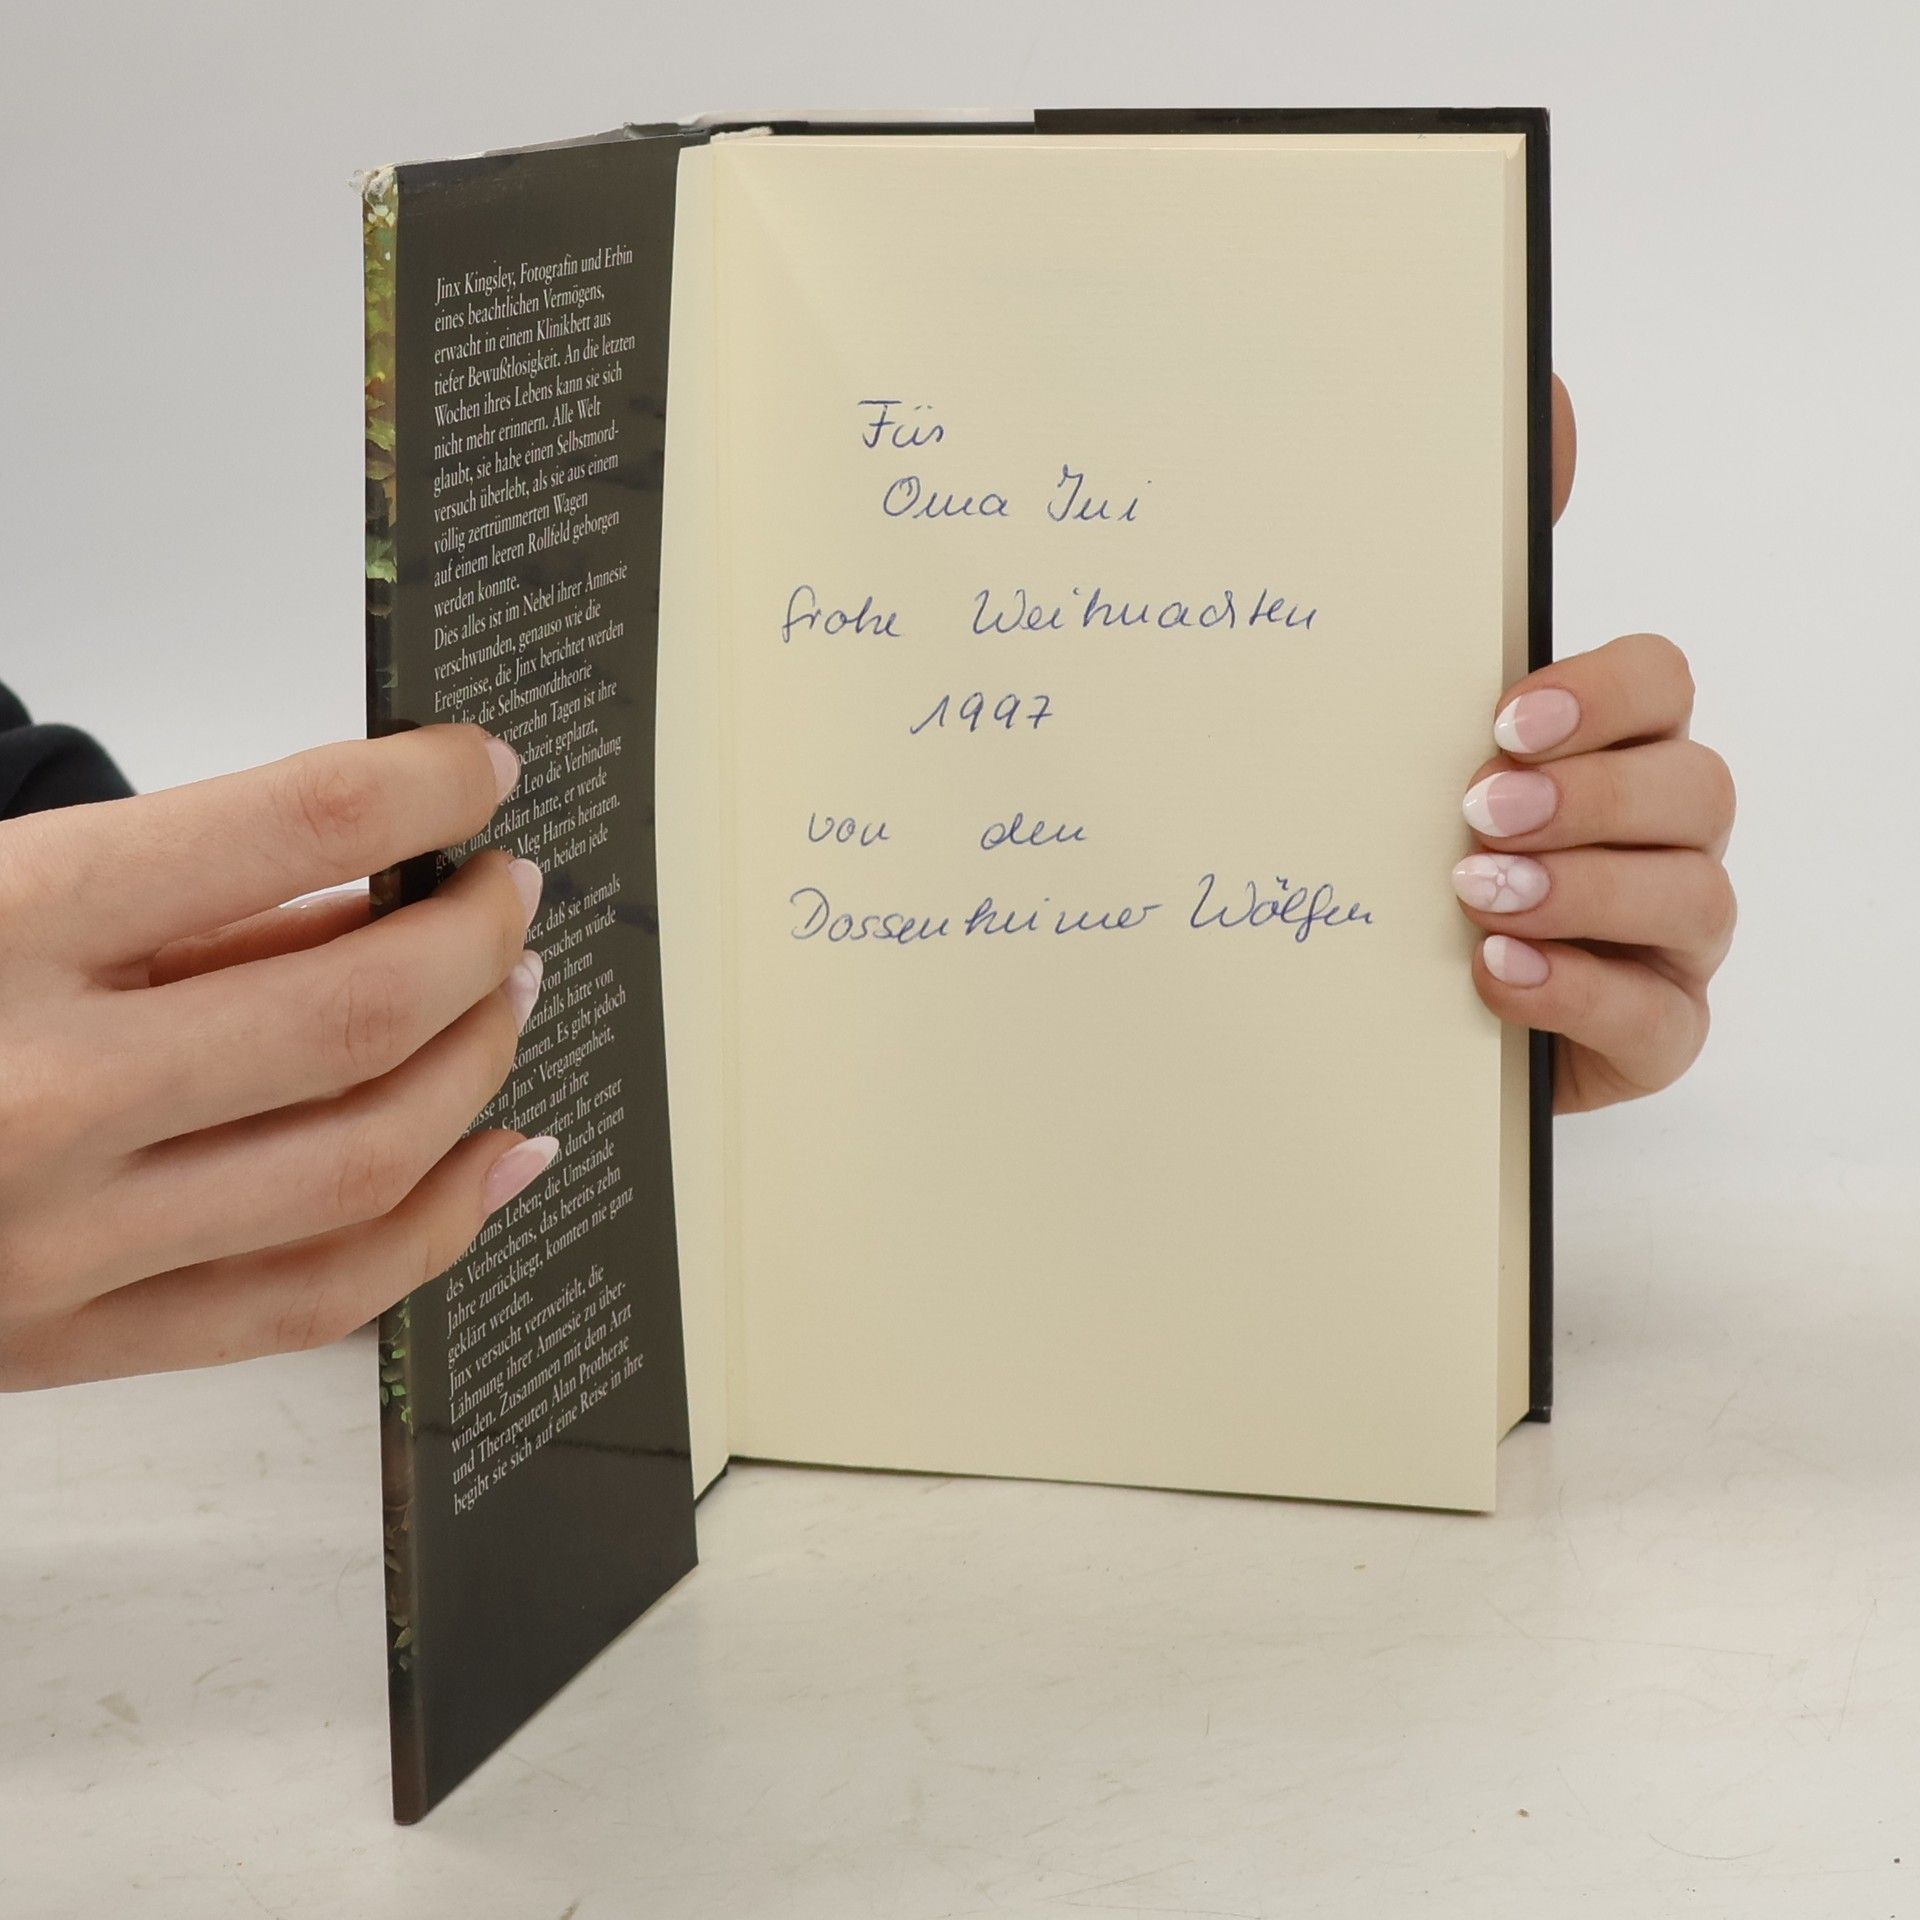 Jinx Kingsley, Fotografin und Erbin
eines beachtlichen Vermögens,
erwacht in einem Klinikbett aus
tiefer Bewußtlosigkeit. An die letzten
Wochen ihres Lebens kann sie sich
nicht mehr erinnern. Alle Welt
glaubt, sie habe einen Selbstmord-
versuch überlebt, als sie aus einem
völlig zertrümmerten Wagen
auf einem leeren Rollfeld geborgen
werden konnte.
Dies alles ist im Nebel ihrer Amnesie
verschwunden, genauso wie die
Ereignisse, die Jinx berichtet werden
die die Selbstmordtheorie
vierzehn Tagen ist ihre
ochzeit geplatzt,
Leo die Verbindung
gelöst und erklärt hatte, er werde
Meg Harris heiraten.
den beiden jede
daß sie niemals
ersuchen würde
von ihrem
allenfalls hätte von
können. Es gibt jedoch
in Jinx' Vergangenheit,
Schatten auf ihre
werfen: Ihr erster
durch einen
Mord ums Leben; die Umstände
des Verbrechens, das bereits zehn
Jahre zurückliegt, konnten nie ganz
geklärt werden.
Jinx versucht verzweifelt, die
Lähmung ihrer Amnesie zu über-
winden. Zusammen mit dem Arzt
und Therapeuten Alan Protherae
begibt sie sich auf eine Reise in ihre
Für
Oma Ini
frohe Weihnachten
1997
von den
Dossenheimer Wölfen